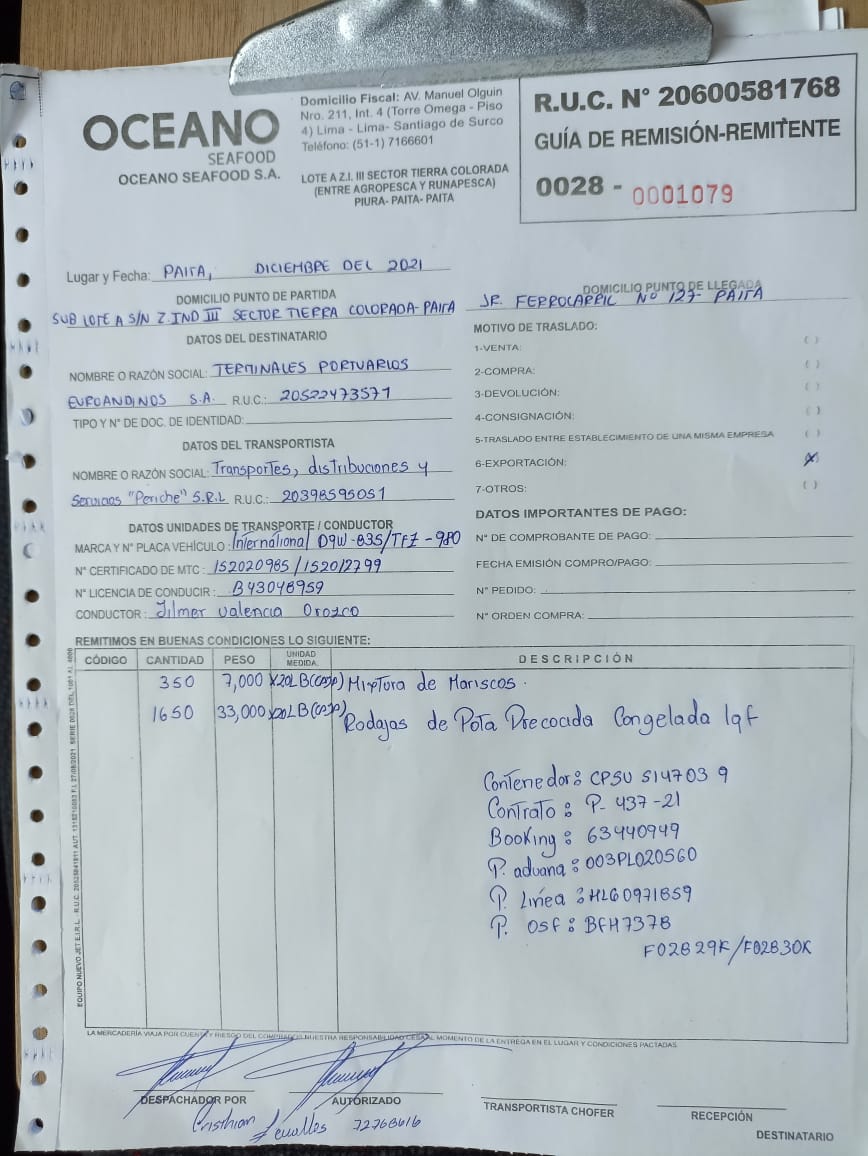 OCEANO
SEAFOOD
OCEANO SEAFOOD S.A.
Domicilio Fiscal: AV. Manuel Olguin
Nro. 211, Int. 4 (Torre Omega - Piso
4) Lima - Lima- Santiago de Surco
Teléfono: (51-1) 7166601
LOTE A Z.I. III SECTOR TIERRA COLORADA
(ENTRE AGROPESCA Y RUNAPESCA)
PIURA- PAITA- PAITA
R.U.C. N° 20600581768
GUÍA DE REMISIÓN-REMITENTE
0028 - 0001079
Lugar y Fecha: PAITA, DICIEMBRE DEL 2021
DOMICILIO PUNTO DE PARTIDA
SUB LOTE A S/N Z.IND III SECTOR TIERRA COLORADA-PAITA
DOMICILIO PUNTO DE LLEGADA
JR. FERROCARRIL N° 127- PAITA
DATOS DEL DESTINATARIO
NOMBRE O RAZÓN SOCIAL: TERMINALES PORTUARIOS
EUROANDINOS S.A. R.U.C.: 20522473571
TIPO Y N° DE DOC. DE IDENTIDAD:
DATOS DEL TRANSPORTISTA
NOMBRE O RAZÓN SOCIAL: Transportes, distribuciones y
Servicios "Periche" S.R.L R.U.C.: 20398595051
DATOS UNIDADES DE TRANSPORTE / CONDUCTOR
MARCA Y N° PLACA VEHÍCULO: International D9W-835/TFZ-980
N° CERTIFICADO DE MTC: 152020985/152012799
N° LICENCIA DE CONDUCIR: B43048959
CONDUCTOR: Jilmer Valencia Orozco
MOTIVO DE TRASLADO:
1-VENTA: ( )
2-COMPRA: ( )
3-DEVOLUCIÓN: ( )
4-CONSIGNACIÓN: ( )
5-TRASLADO ENTRE ESTABLECIMIENTO DE UNA MISMA EMPRESA ( )
6-EXPORTACIÓN: (X)
7-OTROS: ( )
DATOS IMPORTANTES DE PAGO:
N° DE COMPROBANTE DE PAGO:
FECHA EMISIÓN COMPRO/PAGO:
N° PEDIDO:
N° ORDEN COMPRA:
REMITIMOS EN BUENAS CONDICIONES LO SIGUIENTE:
CÓDIGO CANTIDAD PESO UNIDAD MEDIDA. DESCRIPCIÓN
350 7,000 x20LB(caja) Mixtura de Mariscos.
1650 33,000 x20LB(caja) Rodajas de Pota Precocida Congelada Iqf
Contenedor: CPSU 514703 9
Contrato: P- 437-21
Booking: 63440949
P. aduana: 003PL020560
P. Línea: HLG0971859
P. OSF: BFH7378
F02829K/F02830K
LA MERCADERÍA VIAJA POR CUENTA Y RIESGO DEL COMPRADOR NUESTRA RESPONSABILIDAD CESA AL MOMENTO DE LA ENTREGA EN EL LUGAR Y CONDICIONES PACTADAS
DESPACHADOR POR
AUTORIZADO
TRANSPORTISTA CHOFER
RECEPCIÓN
DESTINATARIO
Cristhian
72768616